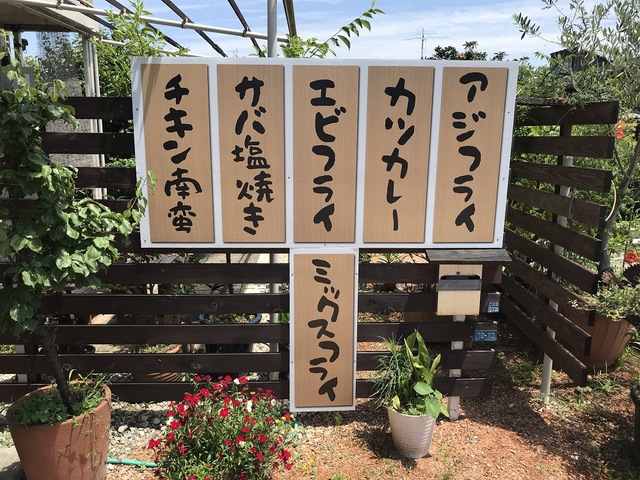 アジフライ
カツカレー
エビフライ
サバ塩焼き
チキン南蛮
ミックスフライ